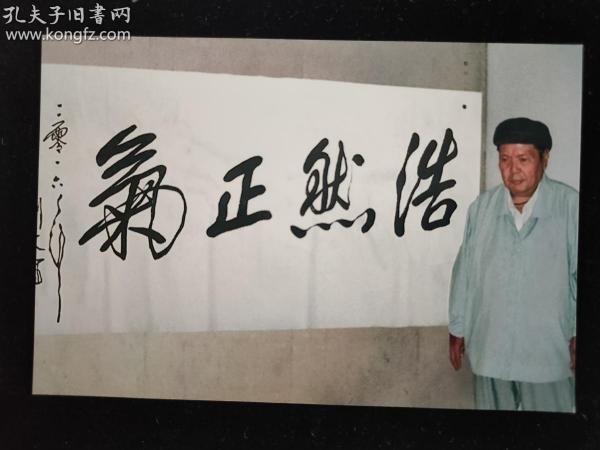 孔夫子旧书网
www.kongfz.com
浩然正氣
二零一六